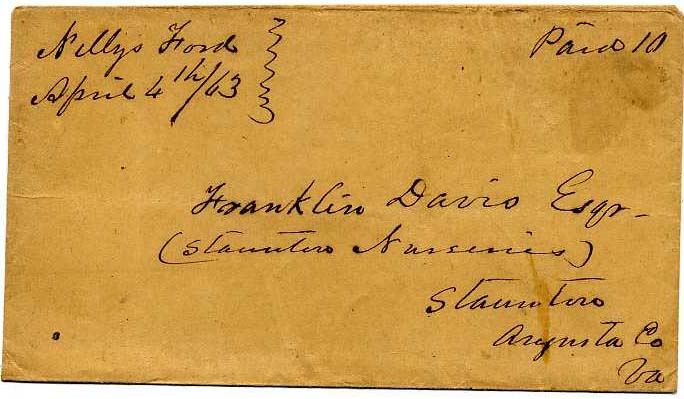 Nellys Ford
April 4th/63
Paid 10
Franklin Davis Esqr
(Staunton Nurseries)
Staunton
Augusta Co
Va